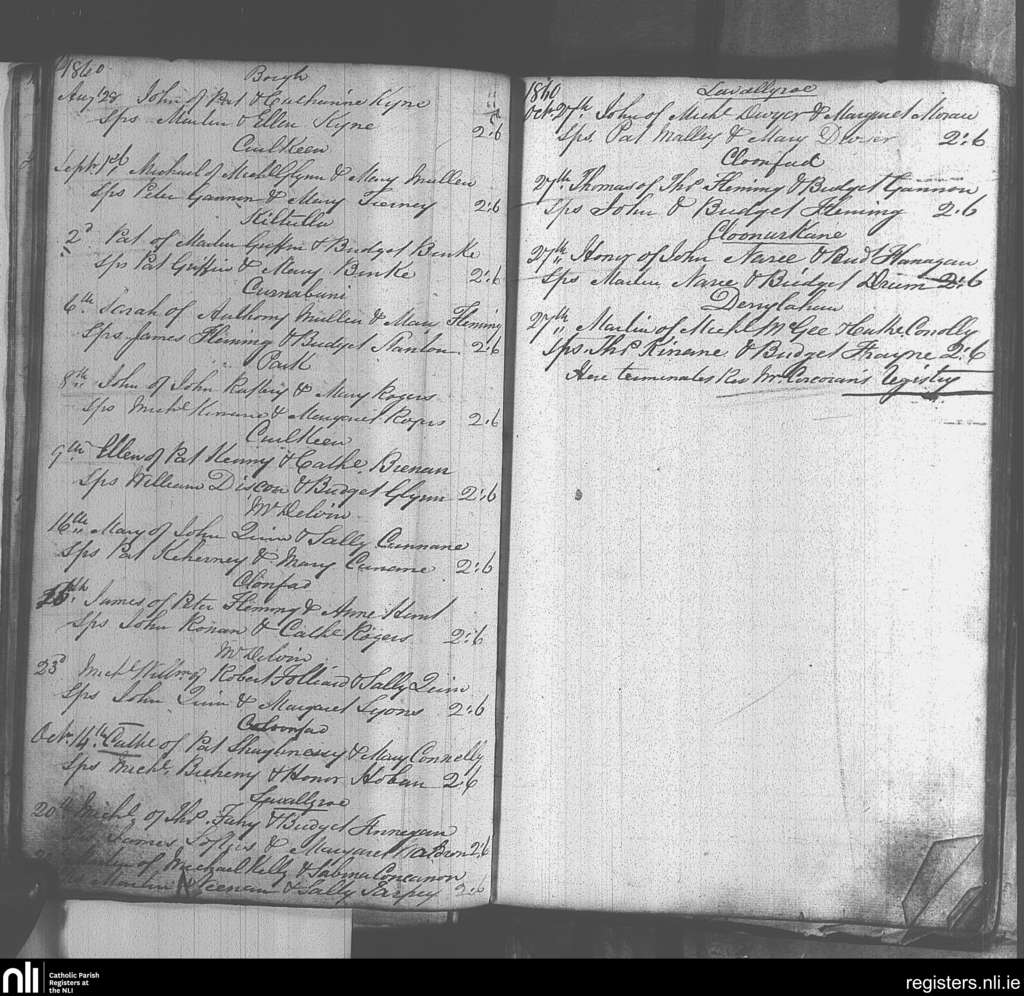 1860
Borgh
Augt 28 John of Pat & Catherine Kyne
Sps Martin & Ellen Kyne 2:6
Caulkeen
Septr 1st Michael of Michl Glynn & Mary Mullen
Sps Peter Gannon & Mary Tierney 2:6
Kiltulla
2d Pat of Martin Griffin & Budget Burke
Sps Pat Griffin & Mary Burke 2:6
Curnabuni
6th Sarah of Anthony Mullin & Mary Fleming
Sps James Fleming & Budget Nanton 2:6
Park
8th John of John & Mary Rogers
Sps Michl Kinane & Margaret Rogers 2:6
Caulkeen
9th Ellen of Pat Kenny & Cathe Brenan
Sps William & Budget Glynn 2:6
Mt Delvin
16th Mary of John Quinn & Sally Cunnane
Sps Pat Keherney & Mary Cunane 2:6
Clonfad
James of Peter Fleming & Anne Hunt
Sps John Ronan & Cathe Rogers 2:6
Mt Delvin
23d Michl Willm of Robert Folliard & Sally Quinn
Sps John Quinn & Margaret Lyons 2:6
Cloonfad
Octr 14th Cathe of Pat Shaghnessy & Mary Connelly
Sps Michl Breheny & Honor Hoban 2:6
Lavallyroe
20th Michl of Thos Fahy & Budget Finnegan
James & Margaret Waldron 2:6
of Michael Kelly & Sabina Concanon
Martin Keenan & Sally Tarpey 2:6
1860
Lavallyroe
Octr 27th John of Michl Dwyer & Margaret Moran
Sps. Pat Malley & Mary Dwyer 2:6
Cloonfad
27th Thomas of Thos Fleming & Budget Gannon
Sps John & Budget Fleming 2:6
Cloonurkane
27th Honor of John Naree & Bud Flanagan
Sps Martin Naree & Bridget Drum 2:6
Derrylahan
27th Martin of Michl McGee & Cathe Conolly
Sps. Thos Kinane & Budget Frayne 2:6
Here terminates Rev Mr Corcoran's registry
nli
Catholic Parish
Registers at
the NLI
registers.nli.ie